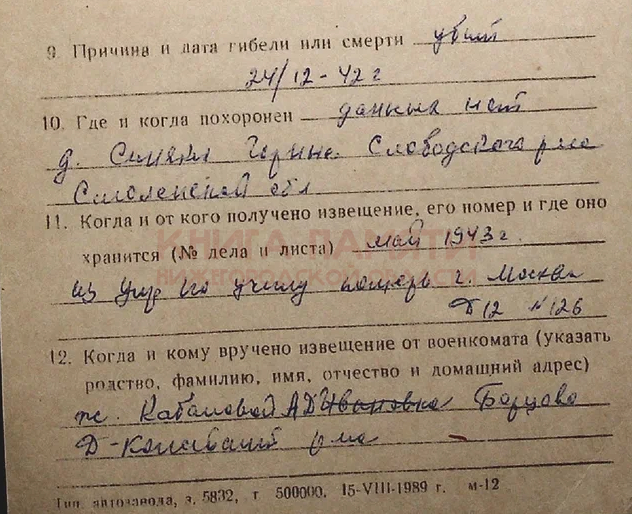 9. Причина и дата гибели или смерти убит
24/12-42 г
10. Где и когда похоронен данных нет
д. Слободского р-на
Смоленской обл
11. Когда и от кого получено извещение, его номер и где оно
хранится (№ дела и листа) май 1943 г.
из Упр по учету потерь г. Москва
Д 12 № 126
12. Когда и кому вручено извещение от военкомата (указать
родство, фамилию, имя, отчество и домашний адрес)
ж. Кабановой А Д Ивановка
Д-Константин р-на
Тип. автозавода, з. 5832, т 500000. 15-VIII-1989 г. м-12
КНИГА ПАМЯТИ
НИЖЕГОРОДСКОЙ ОБЛАСТИ